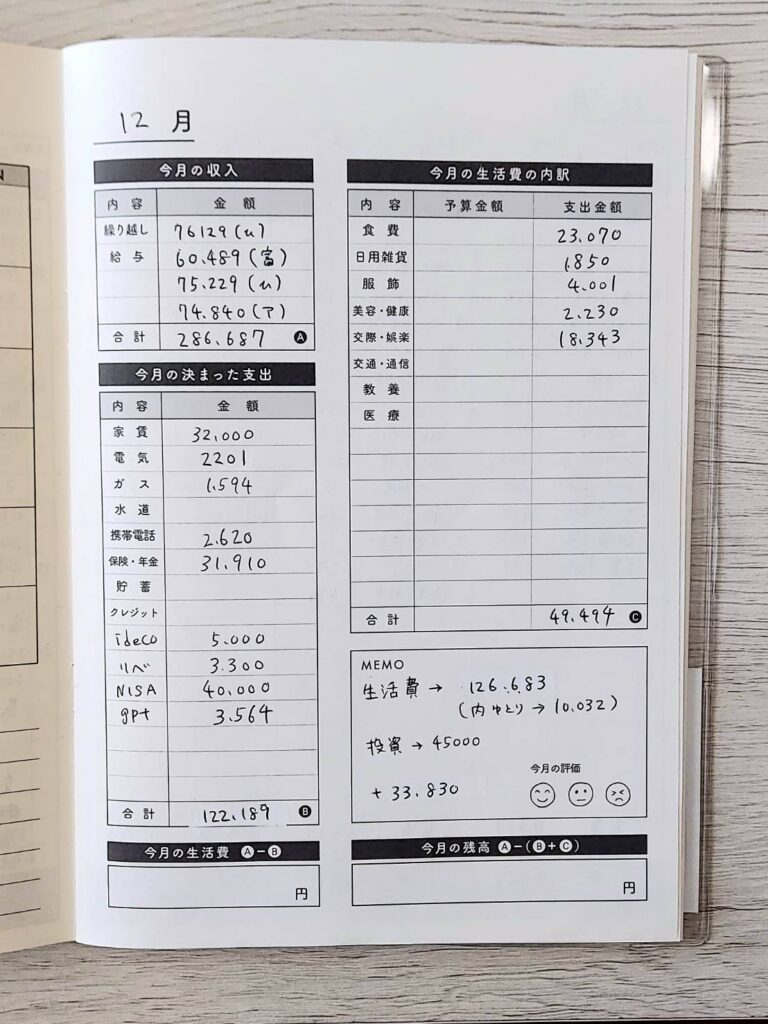 12 月
今月の収入
内容 金額
繰り越し 76129(い)
給与 60.489(富)
75.229(い)
74.840(ア)
合計 286.687 A
今月の決まった支出
内容 金額
家賃 32,000
電気 2201
ガス 1.594
水道
携帯電話 2.620
保険・年金 31,910
貯蓄
クレジット
ideco 5.000
リベ 3.300
NISA 40,000
gpt 3.564
合計 122,189 B
今月の生活費 A-B
円
今月の生活費の内訳
内容 予算金額 支出金額
食費 23.070
日用雑貨 1.850
服飾 4.001
美容・健康 2.230
交際・娯楽 18.343
交通・通信
教養
医療
合計 49.494 C
MEMO
生活費→ 126.683
(内ゆとり→10.032)
投資→45000
今月の評価
+33.830
今月の残高 A-(B+C)
円